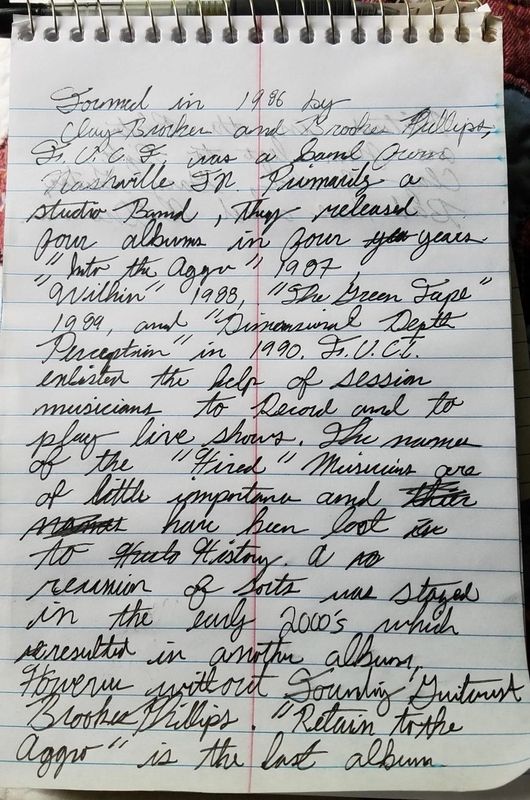 Formed in 1986 by
Clay Brocker and Brookes Phillips,
F.U.C.T. was a band from
Nashville TN Primarily a
studio Band, they released
four albums in four years.
"Into the Aggro" 1987,
"Within" 1988, "The Green Tape"
1989, and "Dimensional Depth
Perception" in 1990. F.U.C.T.
enlisted the help of session
musicians to Record and to
play live shows. The names
of the "Hired" Musicians are
of little importance and their
names have been lost in
to History. A
reunion of sorts was staged
in the early 2000's which
resulted in another album,
However without Founding Guitarist
Brookes Phillips. "Return to the
Aggro" is the last album